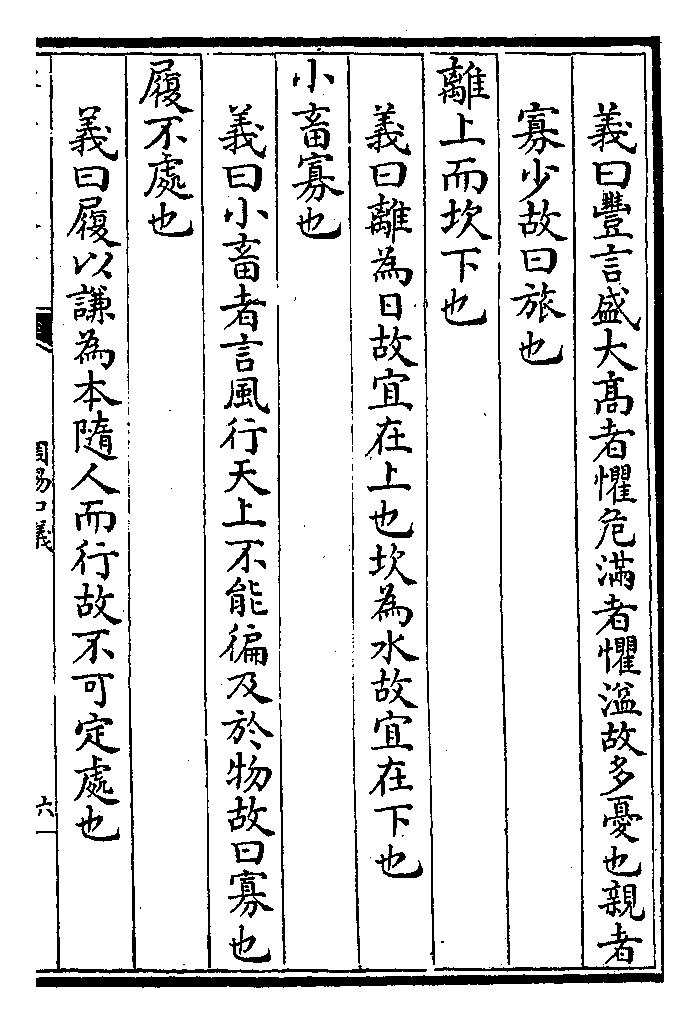 義曰豐言盛大髙者懼危滿者懼溢故多憂也親者
寡少故曰旅也
離上而坎下也
義曰離為日故宜在上也坎為水故宜在下也
小畜寡也
義曰小畜者言風行天上不能徧及於物故曰寡也
履不處也
義曰履以謙為本隨人而行故不可定處也
周易口義
六